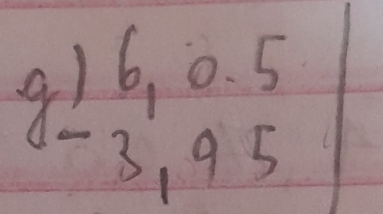 g) 6, 0.5
- 3, 9 5